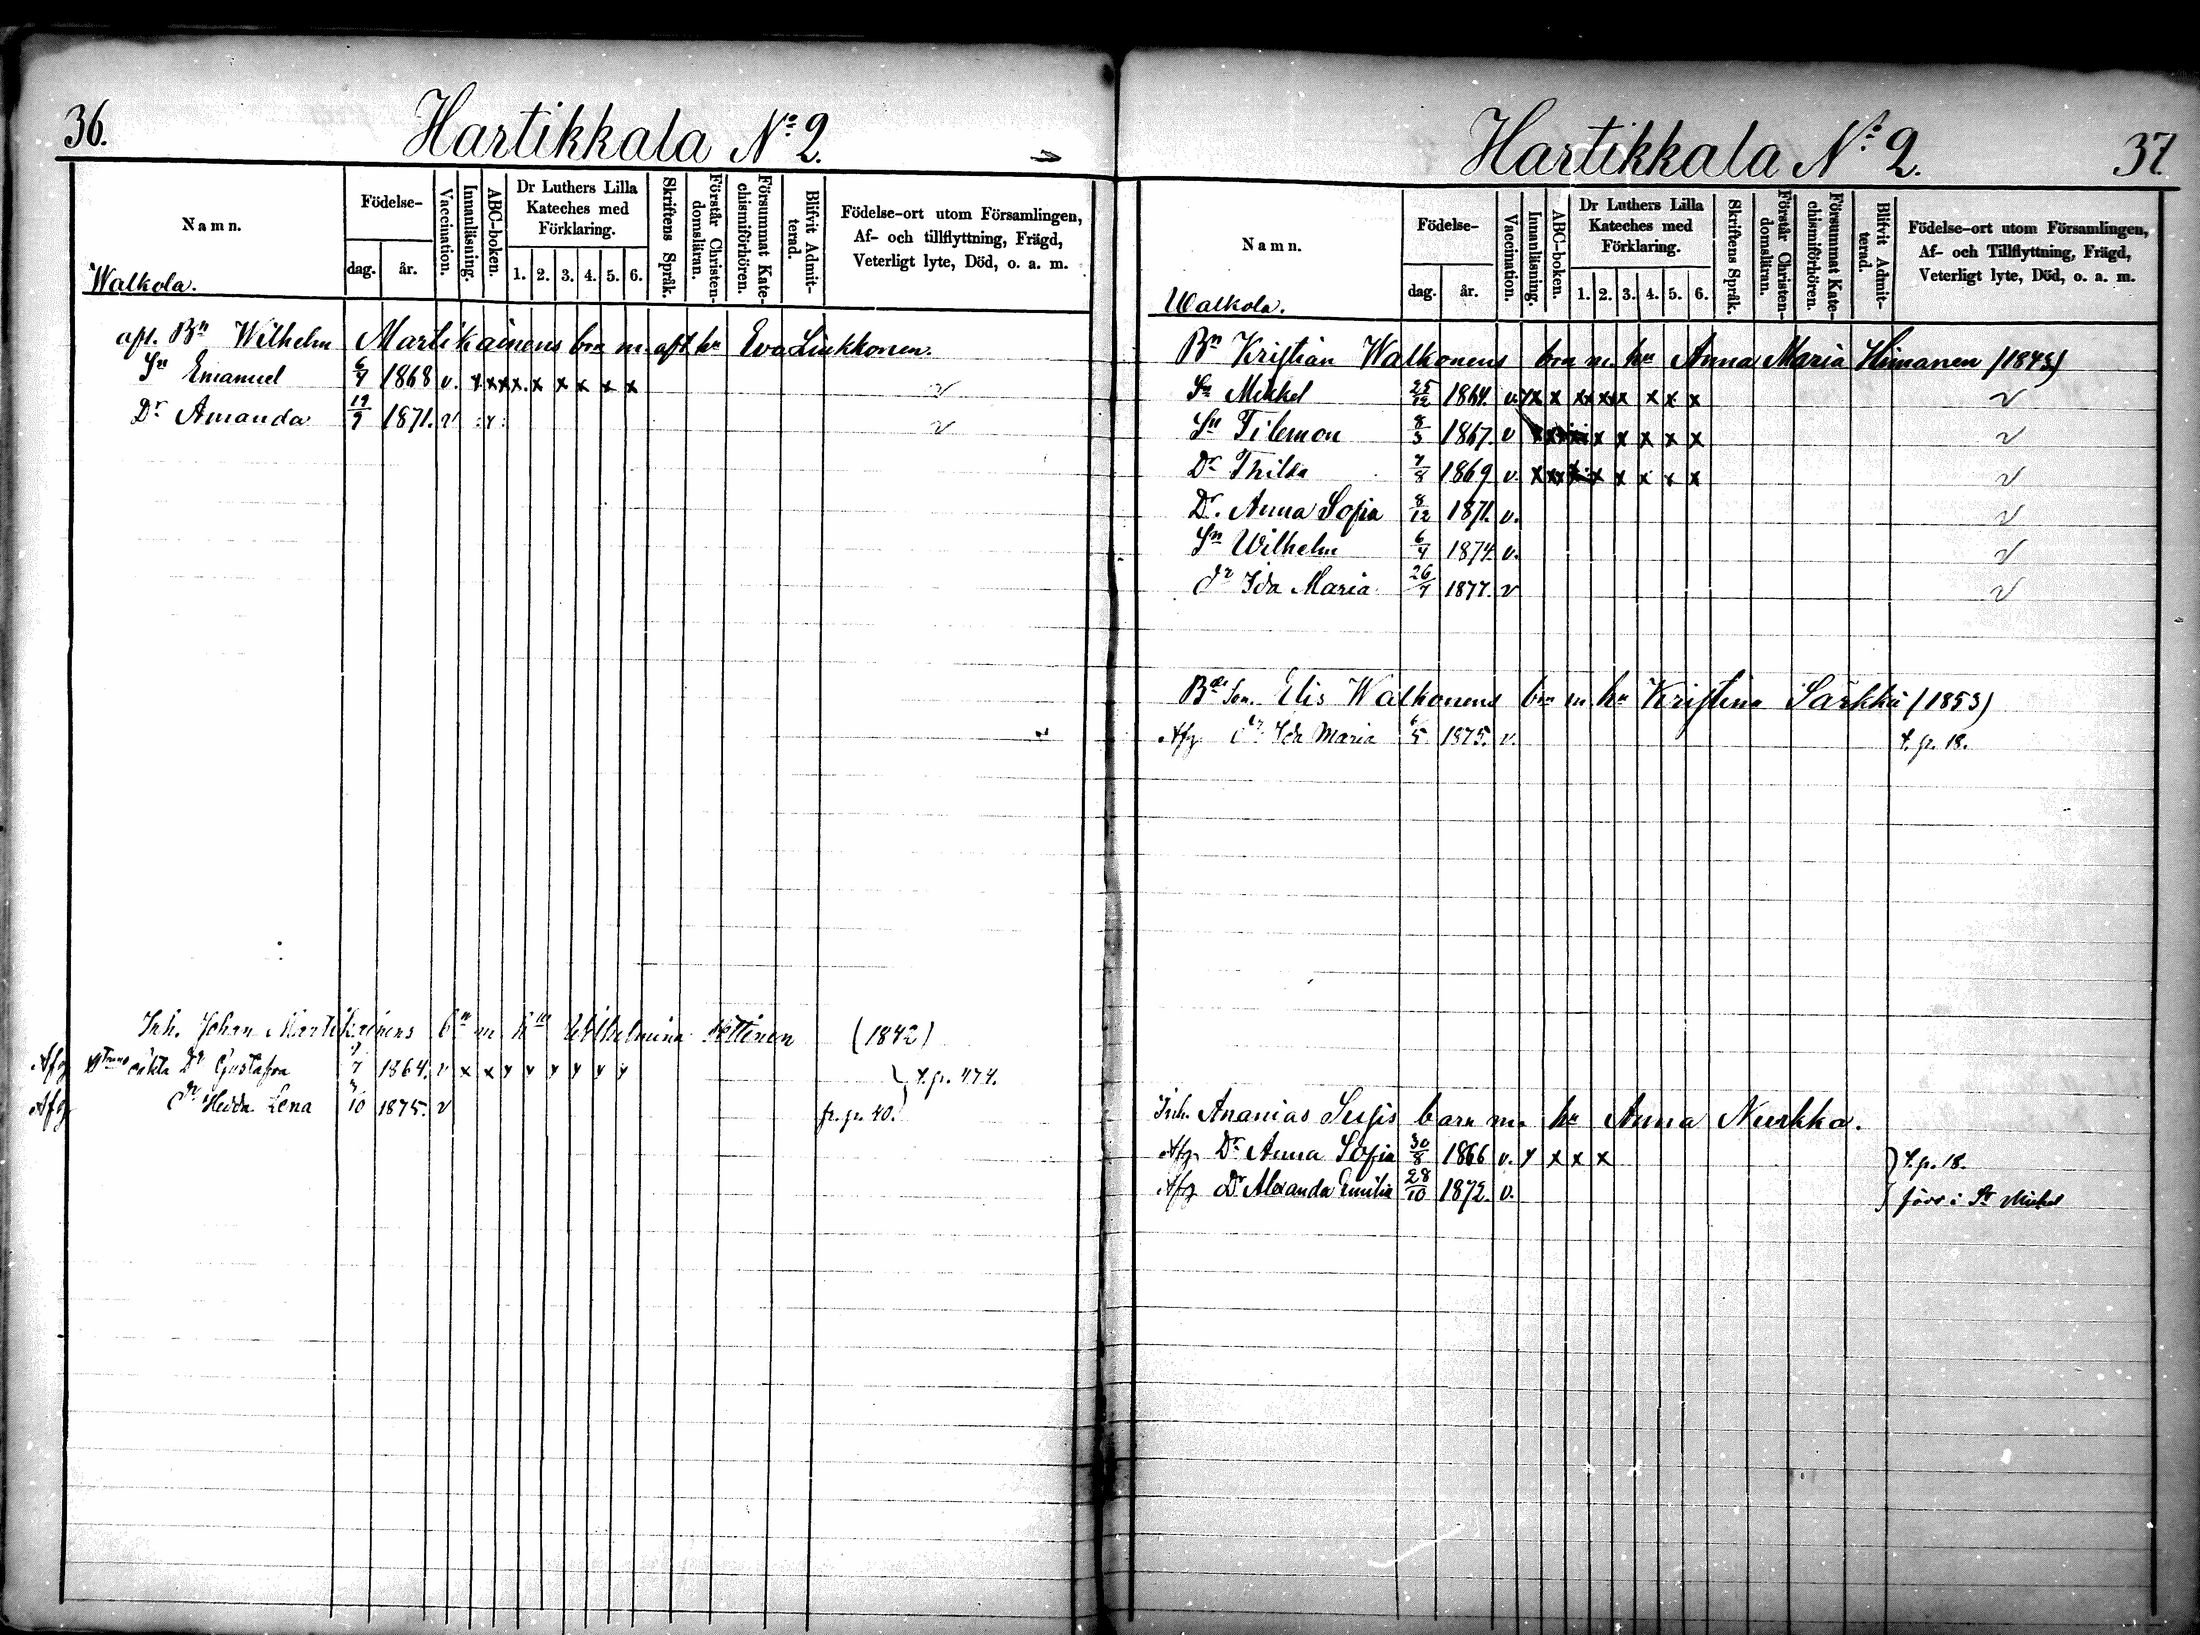 36.
Hartikkala No 2.
Namn.
Födelse-
dag.
år.
Vaccination.
Innanläsning.
ABC-boken.
Dr Luthers Lilla Kateches med Förklaring.
1. 2. 3. 4. 5. 6.
Skriftens Språk.
Förstår Christen-domsläran.
Försummat Kate-chismiförhören.
Blifvit Admit-terad.
Födelse-ort utom Församlingen,
Af- och tillflyttning, Frägd,
Veterligt lyte, Död, o. a. m.
Walkola.
afl. Bn Wilhelm Martikainens brn m. afl. hu Eva Liukkonen.
Sn Emanuel 6/4 1868 v. x x x x. x x x x x v
Dr Amanda 19/9 1871. v x v
Inh. Johan Martikainens bn m hu Wilhelmina (1842)
Afg oäkta Dr Gustafva 1864. v x x y y y y y y
} t. p. 474.
Afg dr Hedda Lena 10 1875. v fr. p. 40.
Hartikkala No 2.
37
Namn.
Födelse-
dag.
år.
Vaccination.
Innanläsning.
ABC-boken.
Dr Luthers Lilla Kateches med Förklaring.
1. 2. 3. 4. 5. 6.
Skriftens Språk.
Förstår Christen-domsläran.
Försummat Kate-chismiförhören.
Blifvit Admit-terad.
Födelse-ort utom Församlingen,
Af- och Tillflyttning, Frägd,
Veterligt lyte, Död, o. a. m.
Walkola.
Bn Kristian Walkonens brn m. hu Anna Maria Himanen (1843)
Sn Mikkel 25/12 1864. v. x x x x x x x x x v
Sn Filemon 8/3 1867. v x x x x x x v
Dr Thilda 7/8 1869 v. x x x x x x v
Dr. Anna Sofia 8/12 1871. v. v
Sn Wilhelm 6/4 1874. v. v
dr Ida Maria 26/7 1877. v v
Bde Son. Elis Walkonens brn m hu Kristina Särkkä (1853)
Afg dr Ida Maria 6/5 1875. v. t. p. 18.
Inh. Ananias Susis barn m. hu Anna Nurkka.
Afg. Dr Anna Sofia 30/8 1866 v. y x x x } t. p. 18.
Afg Dr Alexanda Emilia 28/10 1872. v. } förs i St Michel